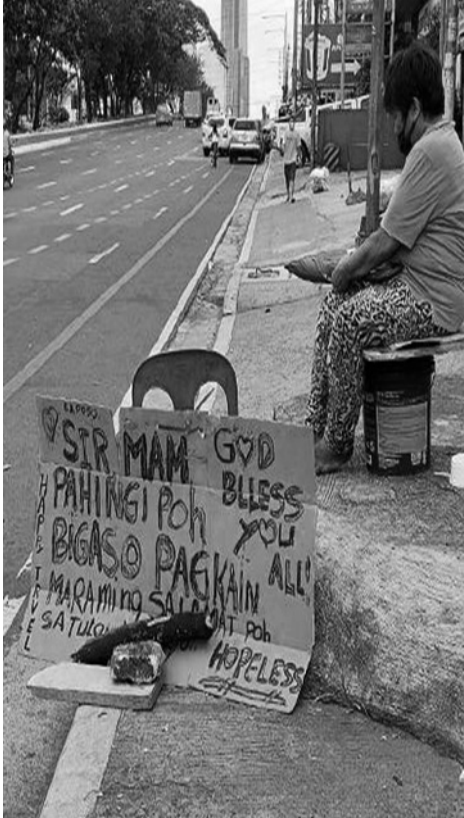 KAPUSO
SIR MAM
PAHINGI Poh
BIGAS O PAGKAIN
MARAMING SALAMAT Poh
SA
GOD
BLLESS
YOU
ALL!
HOPELESS
HAPPY TRAVEL